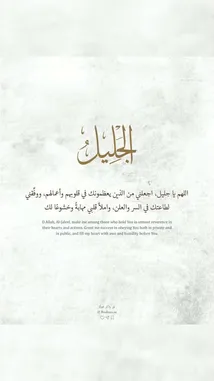 الجَلِيلُ
اللهم يا جليل، اجعلني من الذين يعظمونك في قلوبهم وأعمالهم، ووفّقني
لطاعتك في السر والعلن، واملأ قلبي مهابةً وخشوعًا لك
O Allah, Al-Jaleel, make me among those who hold You in utmost reverence in
their hearts and actions. Grant me success in obeying You both in private and
in public, and fill my heart with awe and humility before You.